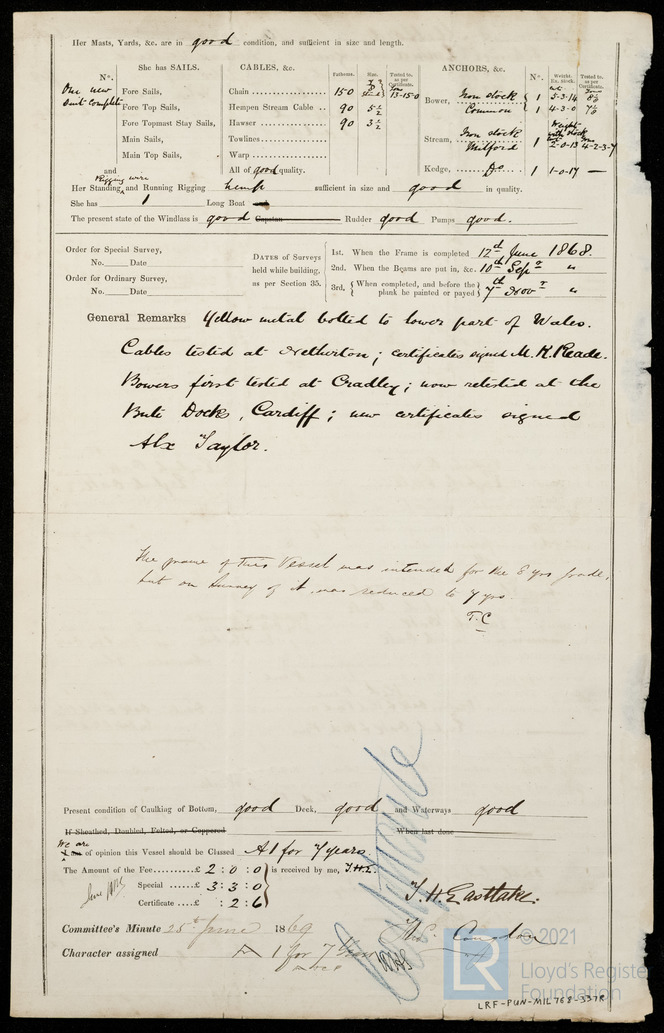 Her Masts, Yards, &c. are in good condition, and sufficient in size and length.
She has SAILS. CABLES, &c. Fathoms. Size. Tested to, as per Certificate. ANCHORS, &c. No. Weight. Ex. Stock. Tested to, as per Certificate.
No.
One new suit complete
Fore Sails,
Fore Top Sails,
Fore Topmast Stay Sails,
Main Sails,
Main Top Sails,
and
Chain 150 13-15-0
Hempen Stream Cable 90 5½
Hawser 90 3½
Towlines
Warp
All of good quality.
Bower, Iron stock 1 5-3-14 8
Common 1 4-3-0 7
Stream, Iron stock Weight with stock
Milford 1 2-0-13 4-2-3-7
Kedge, Do 1 1-0-17 —
Rigging wire
Her Standing and Running Rigging hemp sufficient in size and good in quality.
She has 1 Long Boat
The present state of the Windlass is good Capstan Rudder good Pumps good.
Order for Special Survey,
No. Date
Order for Ordinary Survey,
No. Date
DATES of Surveys
held while building,
as per Section 35.
1st. When the Frame is completed 12th June 1868.
2nd. When the Beams are put in, &c. 10th Sepr "
3rd. When completed, and before the plank be painted or payed 7th Novr "
General Remarks Yellow metal bolted to lower part of Wales.
Cables tested at Netherton; certificates signed M. K. Reade.
Bowers first tested at Cradley; now retested at the
Bute Docks, Cardiff; new certificates signed
Alx Taylor.
The frame of this Vessel was intended for the 8 yrs grade,
but on Survey of it, was reduced to 7 yrs.
T.C
Present condition of Caulking of Bottom, good Deck, good and Waterways good
If Sheathed, Doubled, Felted, or Coppered When last done
We are
I am of opinion this Vessel should be Classed A 1 for 7 years
The Amount of the Fee £ 2 : 0 : 0 is received by me, T.H.E.
Special £ 3 : 3 : 0
Certificate £ : 2 : 6
T. H. Eastlake.
Thos. Congdon
Committee's Minute 25th June 1869
Character assigned A 1 for 7 Years
© 2021
LR
Lloyd's Register
Foundation
LRF-PUN-MIL768-337R